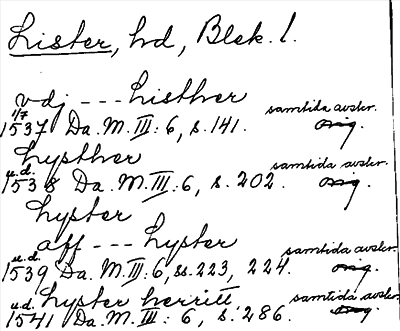 Lister, hd, Blek. l.
vdj --- Listher
1/7 samtida avskr.
1537 Da. M. III: 6, s. 141. orig.
Lysther
u.d. samtida avskr.
1538 Da. M. III: 6, s. 202. orig.
Lyster
aff --- Lyster
u.d. samtida avskr.
1539 Da. M. III: 6, ss. 223, 224. orig.
u.d. Lyster herritt samtida avskr.
1541 Da. M. III: 6, s. 286. orig.